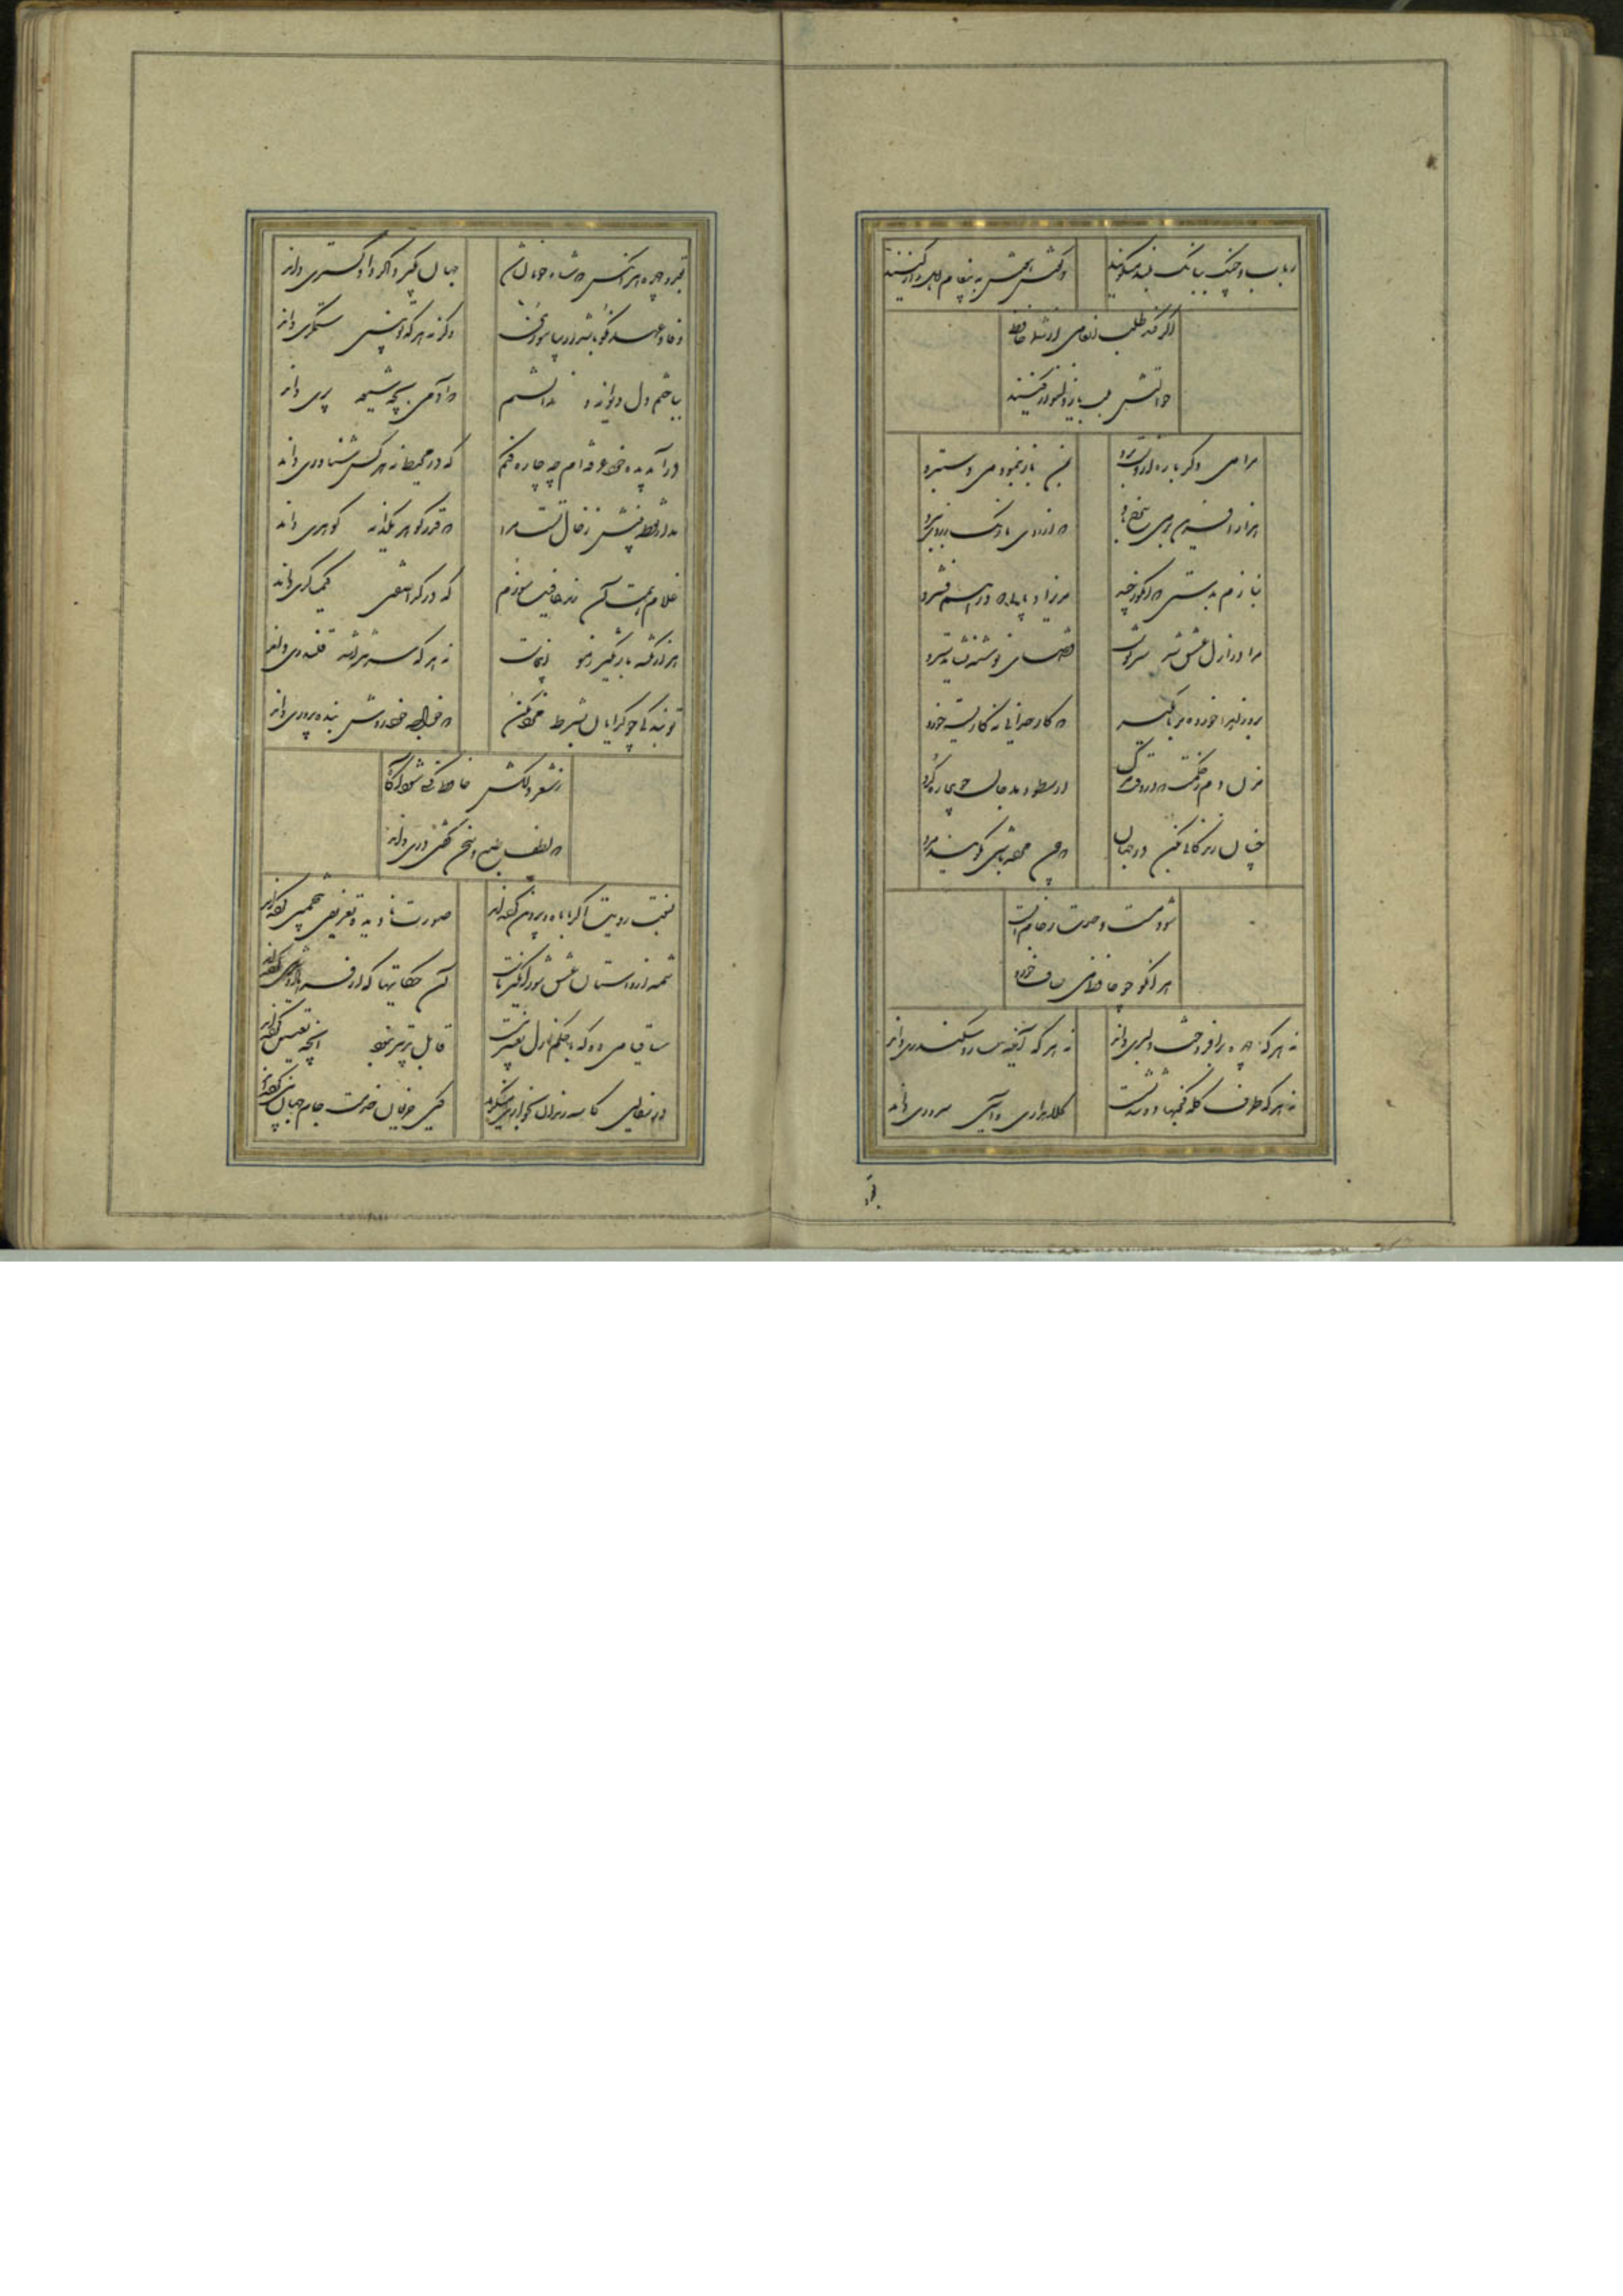 رباب و چنگ ببانک بلند میکویند
که کوش هوش به پیغام اهل راز کنید
اگر کند طلب انعامی از شما حافظ
حوالتش بلب یار دلنواز کنید
مرا می دکر باره از دست برد
بمن باز نمود می دستبرد
هزار آفرین بر می سرخ باد
که از روی ما رنک زردی ببرد
بنازم بدستی که انکور چید
مریزاد پایی که در هم فشرد
مرا در ازل عشق شد سرنوشت
قضای نوشته نشاید سترد
برو زاهدا خورده بر ما مکیر
که کار خدایی نه کاریست خرد
مزن دم ز حکمت که در وقت مرک
ارسطو دهد جان چو بیچاره کرد
چنان زندکانی کن در جهان
که چون مرده باشی نکویند مرد
شود مست وحدت ز جام الست
هر آنکو چو حافظ می صاف خورد
نه هر که چهره برافروخت دلبری داند
نه هر که آینه سازد سکندری داند
نه هر که طرف کله کج نهاد و تند نشست
کلاه داری و آیین سروری داند
بقد و چهره هر آنکس که شاه خوبان شد
جهان بکیرد اکر دادکستری داند
وفا و عهد نکو باشد ار بیاموزی
وکرنه هر که تو بینی ستمکری داند
بباختم دل دیوانه و ندانستم
که آدمی بچه شیوه پری داند
در آب دیده خود غرقه ام چه چاره کنم
که در محیط نه هر کس شناوری داند
مدار نقطه بینش ز خال تست مرا
که قدر کوهر یکدانه کوهری داند
غلام همت آن رند عافیت سوزم
که در کدا صفتی کیمیاکری داند
هزار نکته باریکتر ز مو اینجاست
نه هر که سر بتراشد قلندری داند
تو بندکی چو کدایان بشرط مزد مکن
که خواجه خود روش بنده پروری داند
ز شعر دلکش حافظ کسی شود آکاه
که لطف طبع و سخن کفتن دری داند
نسبت رویت اکر با ماه و پروین کرده اند
صورت نادیده تشبیهی بتخمین کرده اند
شمه از داستان عشق شورانکیز ماست
آن حکایتها که از فرهاد و شیرین کرده اند
ساقیا می ده که با حکم ازل تدبیر نیست
قابل تغییر نبود آنچه تعیین کرده اند
در سفالین کاسه رندان بخواری منکرید
کین حریفان خدمت جام جهان بین کرده اند
بقد